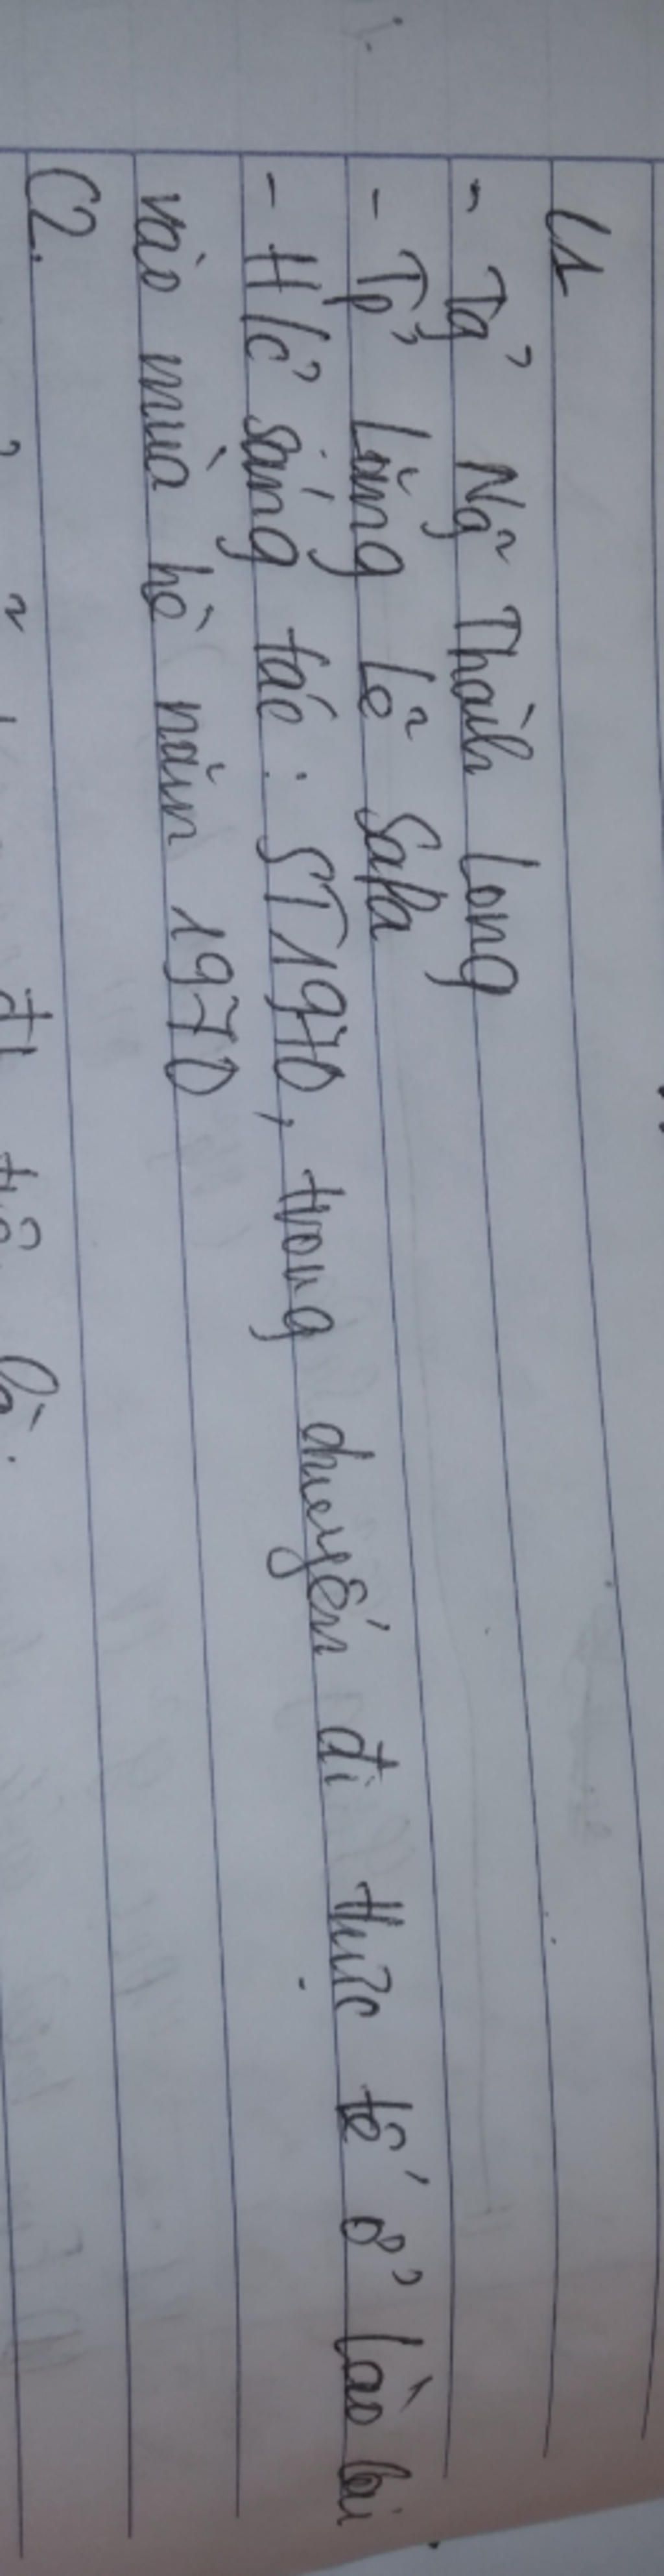 C1
- Tgỉ Ngũ Thành Long
- Tp' Lặng lẽ SaPa
- H/c' sáng tác: ST 1970, trong chuyến đi thực tế ở Lào Cai
vào mùa hè năm 1970
C2.